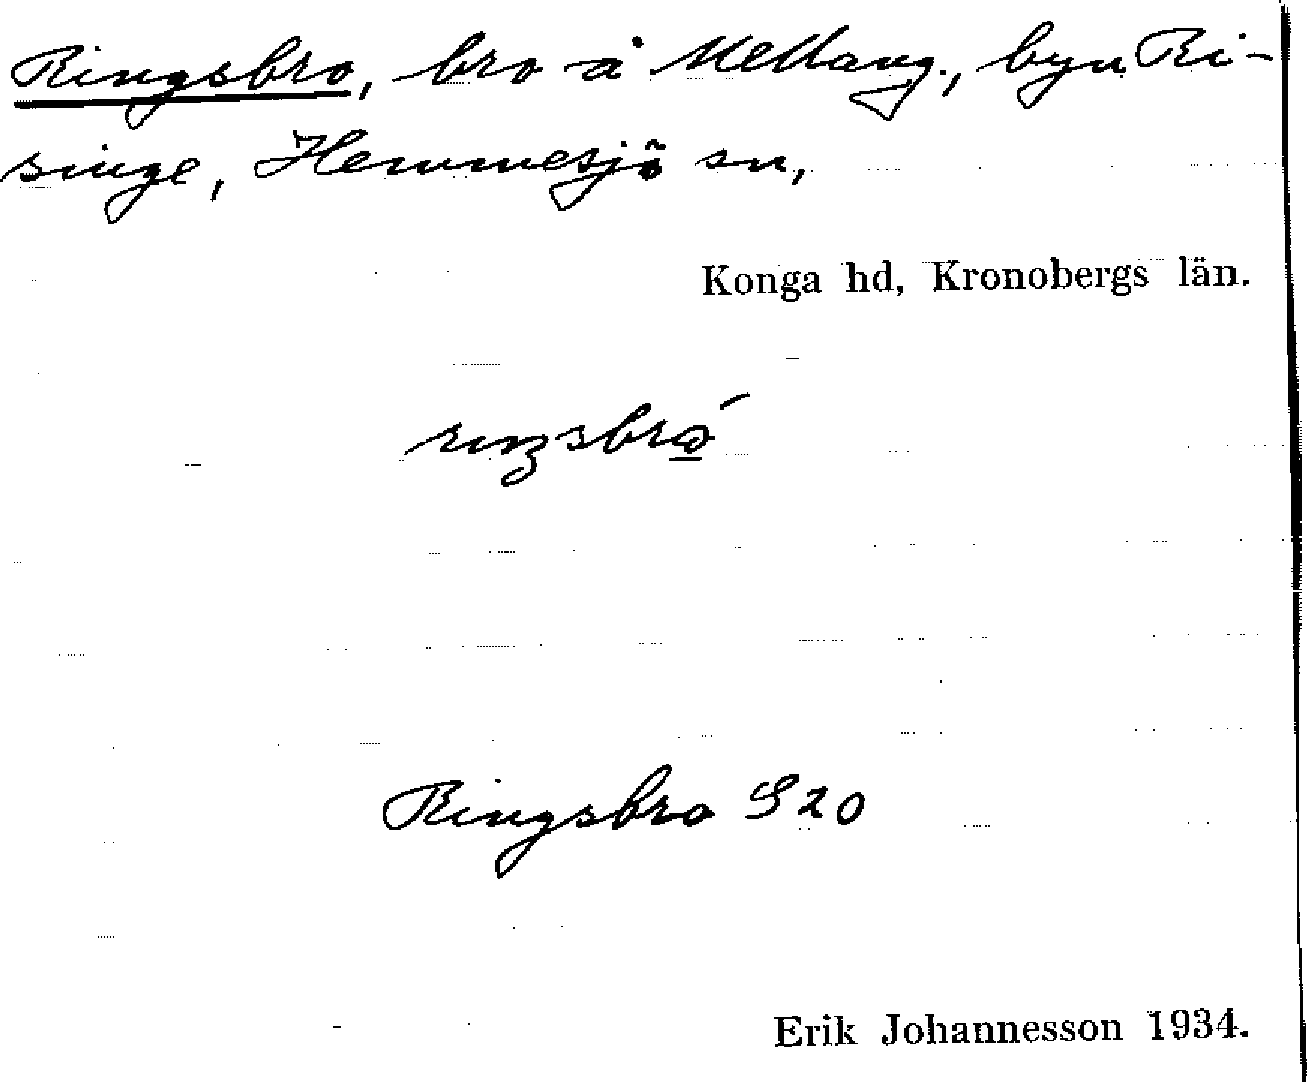 Ringsbro, bro å Mellang., byn Ri-
singe, Hemmesjö sn,
Konga hd, Kronobergs län.
Ringsbro S 20
Erik Johannesson 1934.